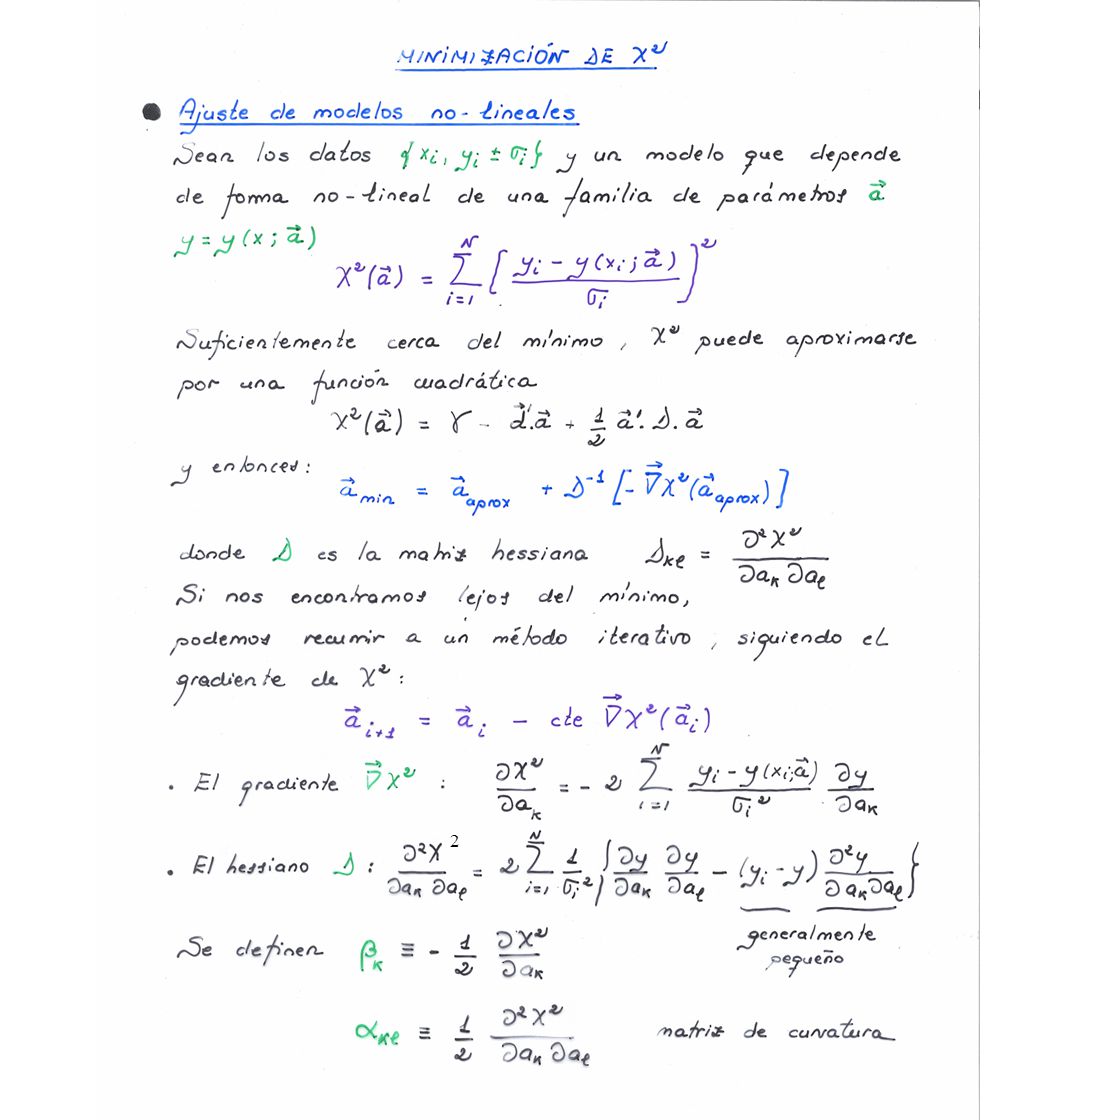 MINIMIZACIÓN DE χ²
● Ajuste de modelos no-lineales
Sean los datos {xᵢ, yᵢ ± σᵢ} y un modelo que depende
de forma no-lineal de una familia de parámetros a⃗
y = y(x; a⃗)
χ²(a⃗) = Σ_{i=1}^{N} [ (yᵢ - y(xᵢ; a⃗)) / σᵢ ]²
Suficientemente cerca del mínimo, χ² puede aproximarse
por una función cuadrática
χ²(a⃗) = γ - d⃗'.a⃗ + 1/2 a⃗'. D. a⃗
y entonces:
a⃗_min = a⃗_aprox + D⁻¹ [- ∇⃗χ²(a⃗_aprox)]
donde D es la matriz hessiana D_kl = ∂²χ² / ∂a_k ∂a_l
Si nos encontramos lejos del mínimo,
podemos recurrir a un método iterativo, siguiendo el
gradiente de χ²:
a⃗_{i+1} = a⃗_i - cte ∇⃗χ²(a⃗_i)
. El gradiente ∇⃗χ² : ∂χ²/∂a_k = - 2 Σ_{i=1}^{N} (yᵢ - y(xᵢ; a⃗)) / σᵢ² ∂y/∂a_k
. El hessiano D : ∂²χ² / ∂a_k ∂a_l = 2 Σ_{i=1}^{N} 1/σᵢ² { ∂y/∂a_k ∂y/∂a_l - (yᵢ - y) ∂²y / ∂a_k ∂a_l }
generalmente
pequeño
Se definen β_k ≡ - 1/2 ∂χ²/∂a_k
α_kl ≡ 1/2 ∂²χ² / ∂a_k ∂a_l matriz de curvatura